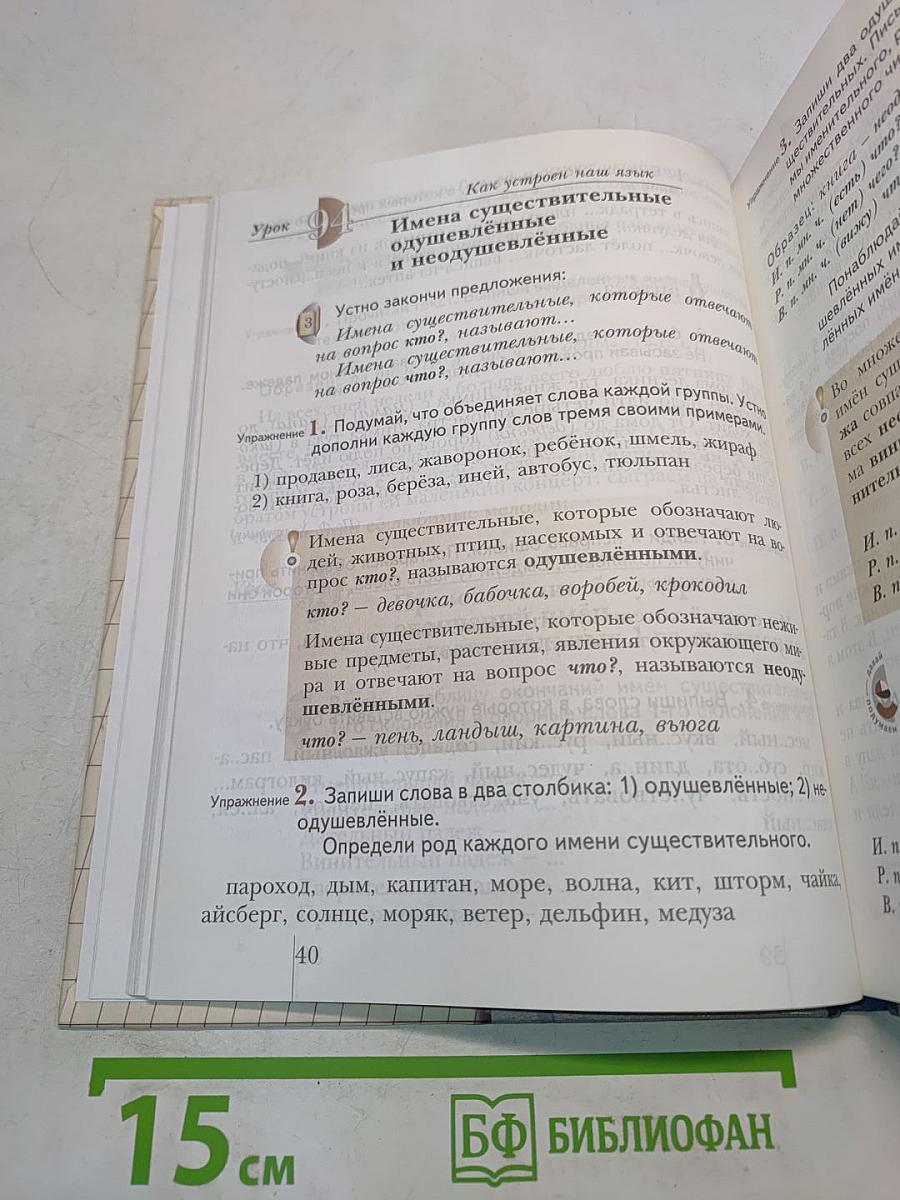 Как устроен наш язык
Урок 94
Имена существительные
одушевлённые
и неодушевлённые
3
Устно закончи предложения:
Имена существительные, которые отвечают
на вопрос кто?, называют...
Имена существительные, которые отвечают
на вопрос что?, называют...
Упражнение 1. Подумай, что объединяет слова каждой группы. Устно
дополни каждую группу слов тремя своими примерами.
1) продавец, лиса, жаворонок, ребёнок, шмель, жираф
2) книга, роза, берёза, иней, автобус, тюльпан
Имена существительные, которые обозначают лю-
дей, животных, птиц, насекомых и отвечают на во-
прос кто?, называются одушевлёнными.
кто? — девочка, бабочка, воробей, крокодил
Имена существительные, которые обозначают нежи-
вые предметы, растения, явления окружающего ми-
ра и отвечают на вопрос что?, называются неоду-
шевлёнными.
что? — пень, ландыш, картина, вьюга
Упражнение 2. Запиши слова в два столбика: 1) одушевлённые; 2) не-
одушевлённые.
Определи род каждого имени существительного.
пароход, дым, капитан, море, волна, кит, шторм, чайка,
айсберг, солнце, моряк, ветер, дельфин, медуза
40
Упражнение 3. Запиши два
ществительных.
мы именительного,
множественного
Образец: книга —
И. п. мн. ч. (есть) что?
Р. п. мн. ч. (нет) чего?
В. п. мн. ч. (вижу)
Понаблюдай
шевлённых
лённых
Во
имён
жа
всех
ма
И. п.
Р. п.
В. п
давай подумаем
И. п
Р. п.
В.
15 см
БФ БИБЛИОФАН